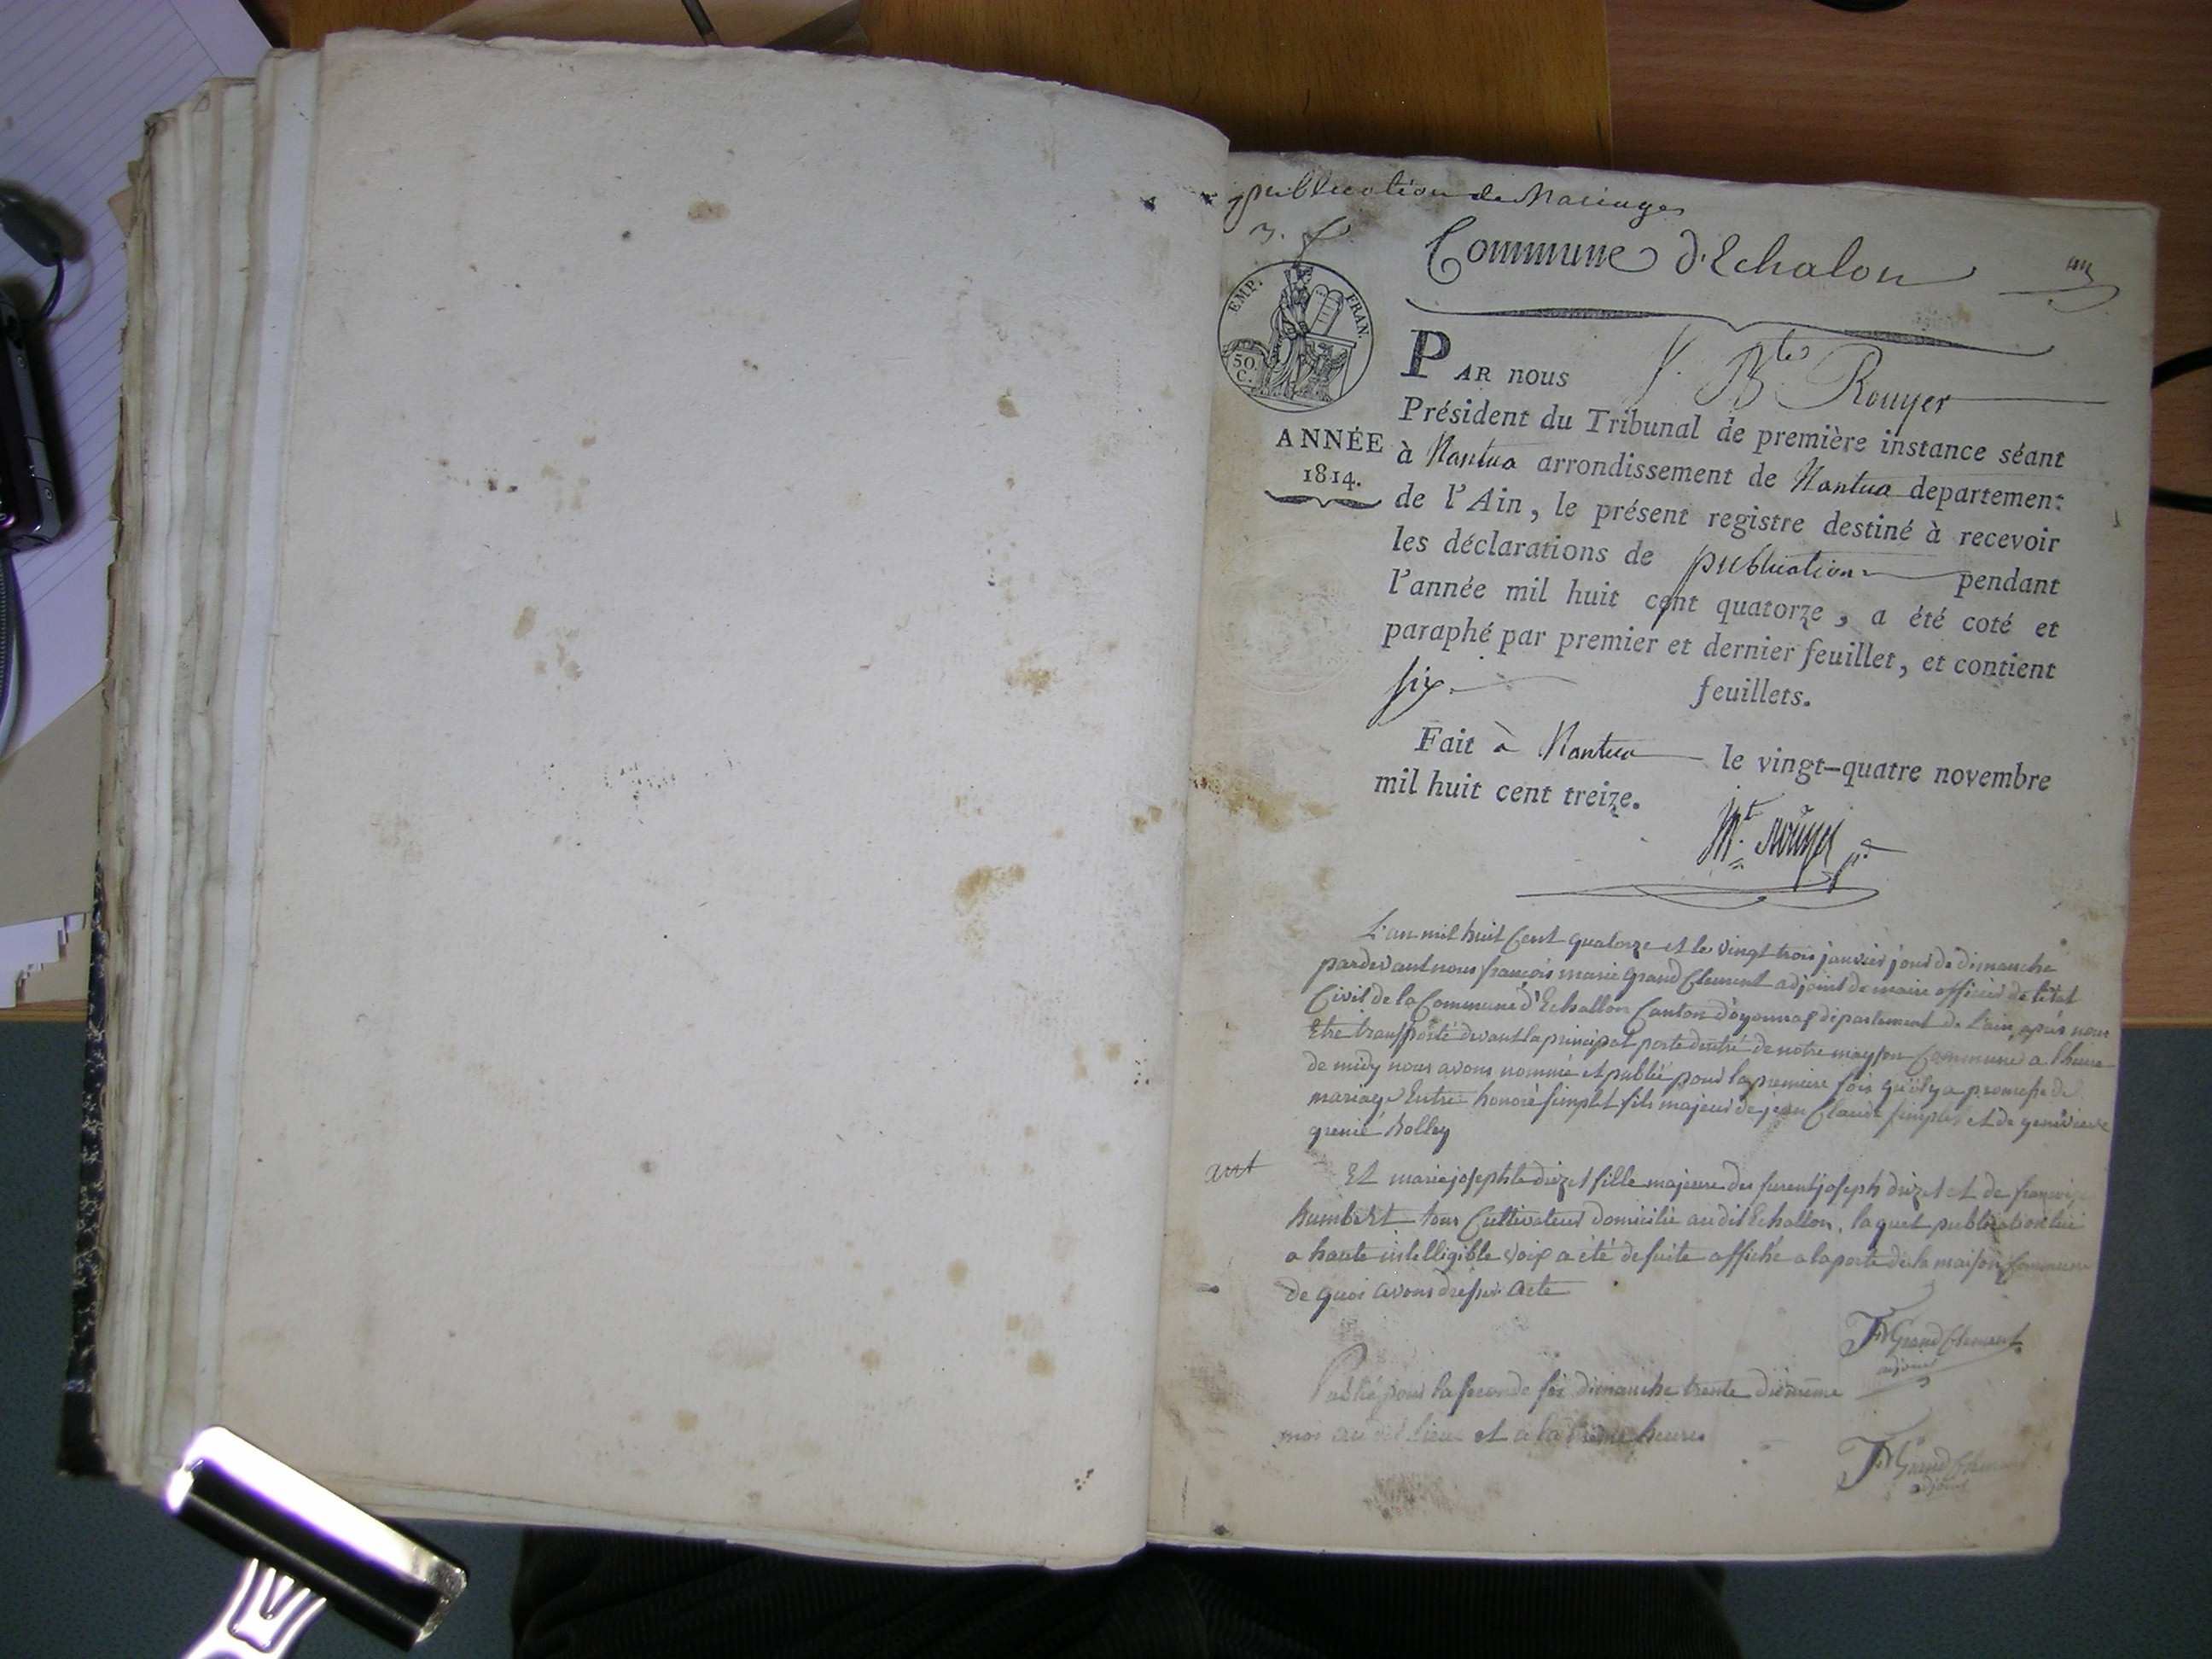 publication de Mariages
3.
Commune d'Echalon
EMP. FRAN.
50 C.
PAR nous J. Bte Rouyer
Président du Tribunal de première instance séant
ANNÉE
1814.
à Nantua arrondissement de Nantua departement
de l'Ain, le présent registre destiné à recevoir
les déclarations de publication pendant
l'année mil huit cent quatorze, a été coté et
paraphé par premier et dernier feuillet, et contient
six. feuillets.
Fait à Nantua le vingt-quatre novembre
mil huit cent treize.
rouyer
L'an mil huit Cent quatorze et le vingt trois janvier jour de dimanche
pardevant nous françois marie Grand Clement adjoint de maire officier de l'état
Civil de la Commune d'Echallon Canton d'oyonnax département de l'ain, après nous
Etre transporté devant la principal porte dentré de notre mayson Commune a l'heure
de midy nous avons nommé et publié pour la premiere fois qu'il y a promesse de
mariage Entre honoré simplet fils majeur de jean Claude simplet et de genevieve
grenié bolley
Et marie josephte druzet fille majeure de furent joseph druzet et de françoise
humbert tous Cultivateur domicilié audit Echallon, laquel publication lui
a haute intelligible voix a été de suite affiché a la porte de la maison Commune
de quoi avons dressé acte
FM Grand Clement
adjoint
Publié pour la seconde foi dimanche trente du même
moi au dit lieu et a la même heure
FM Grand Clement
adjoint